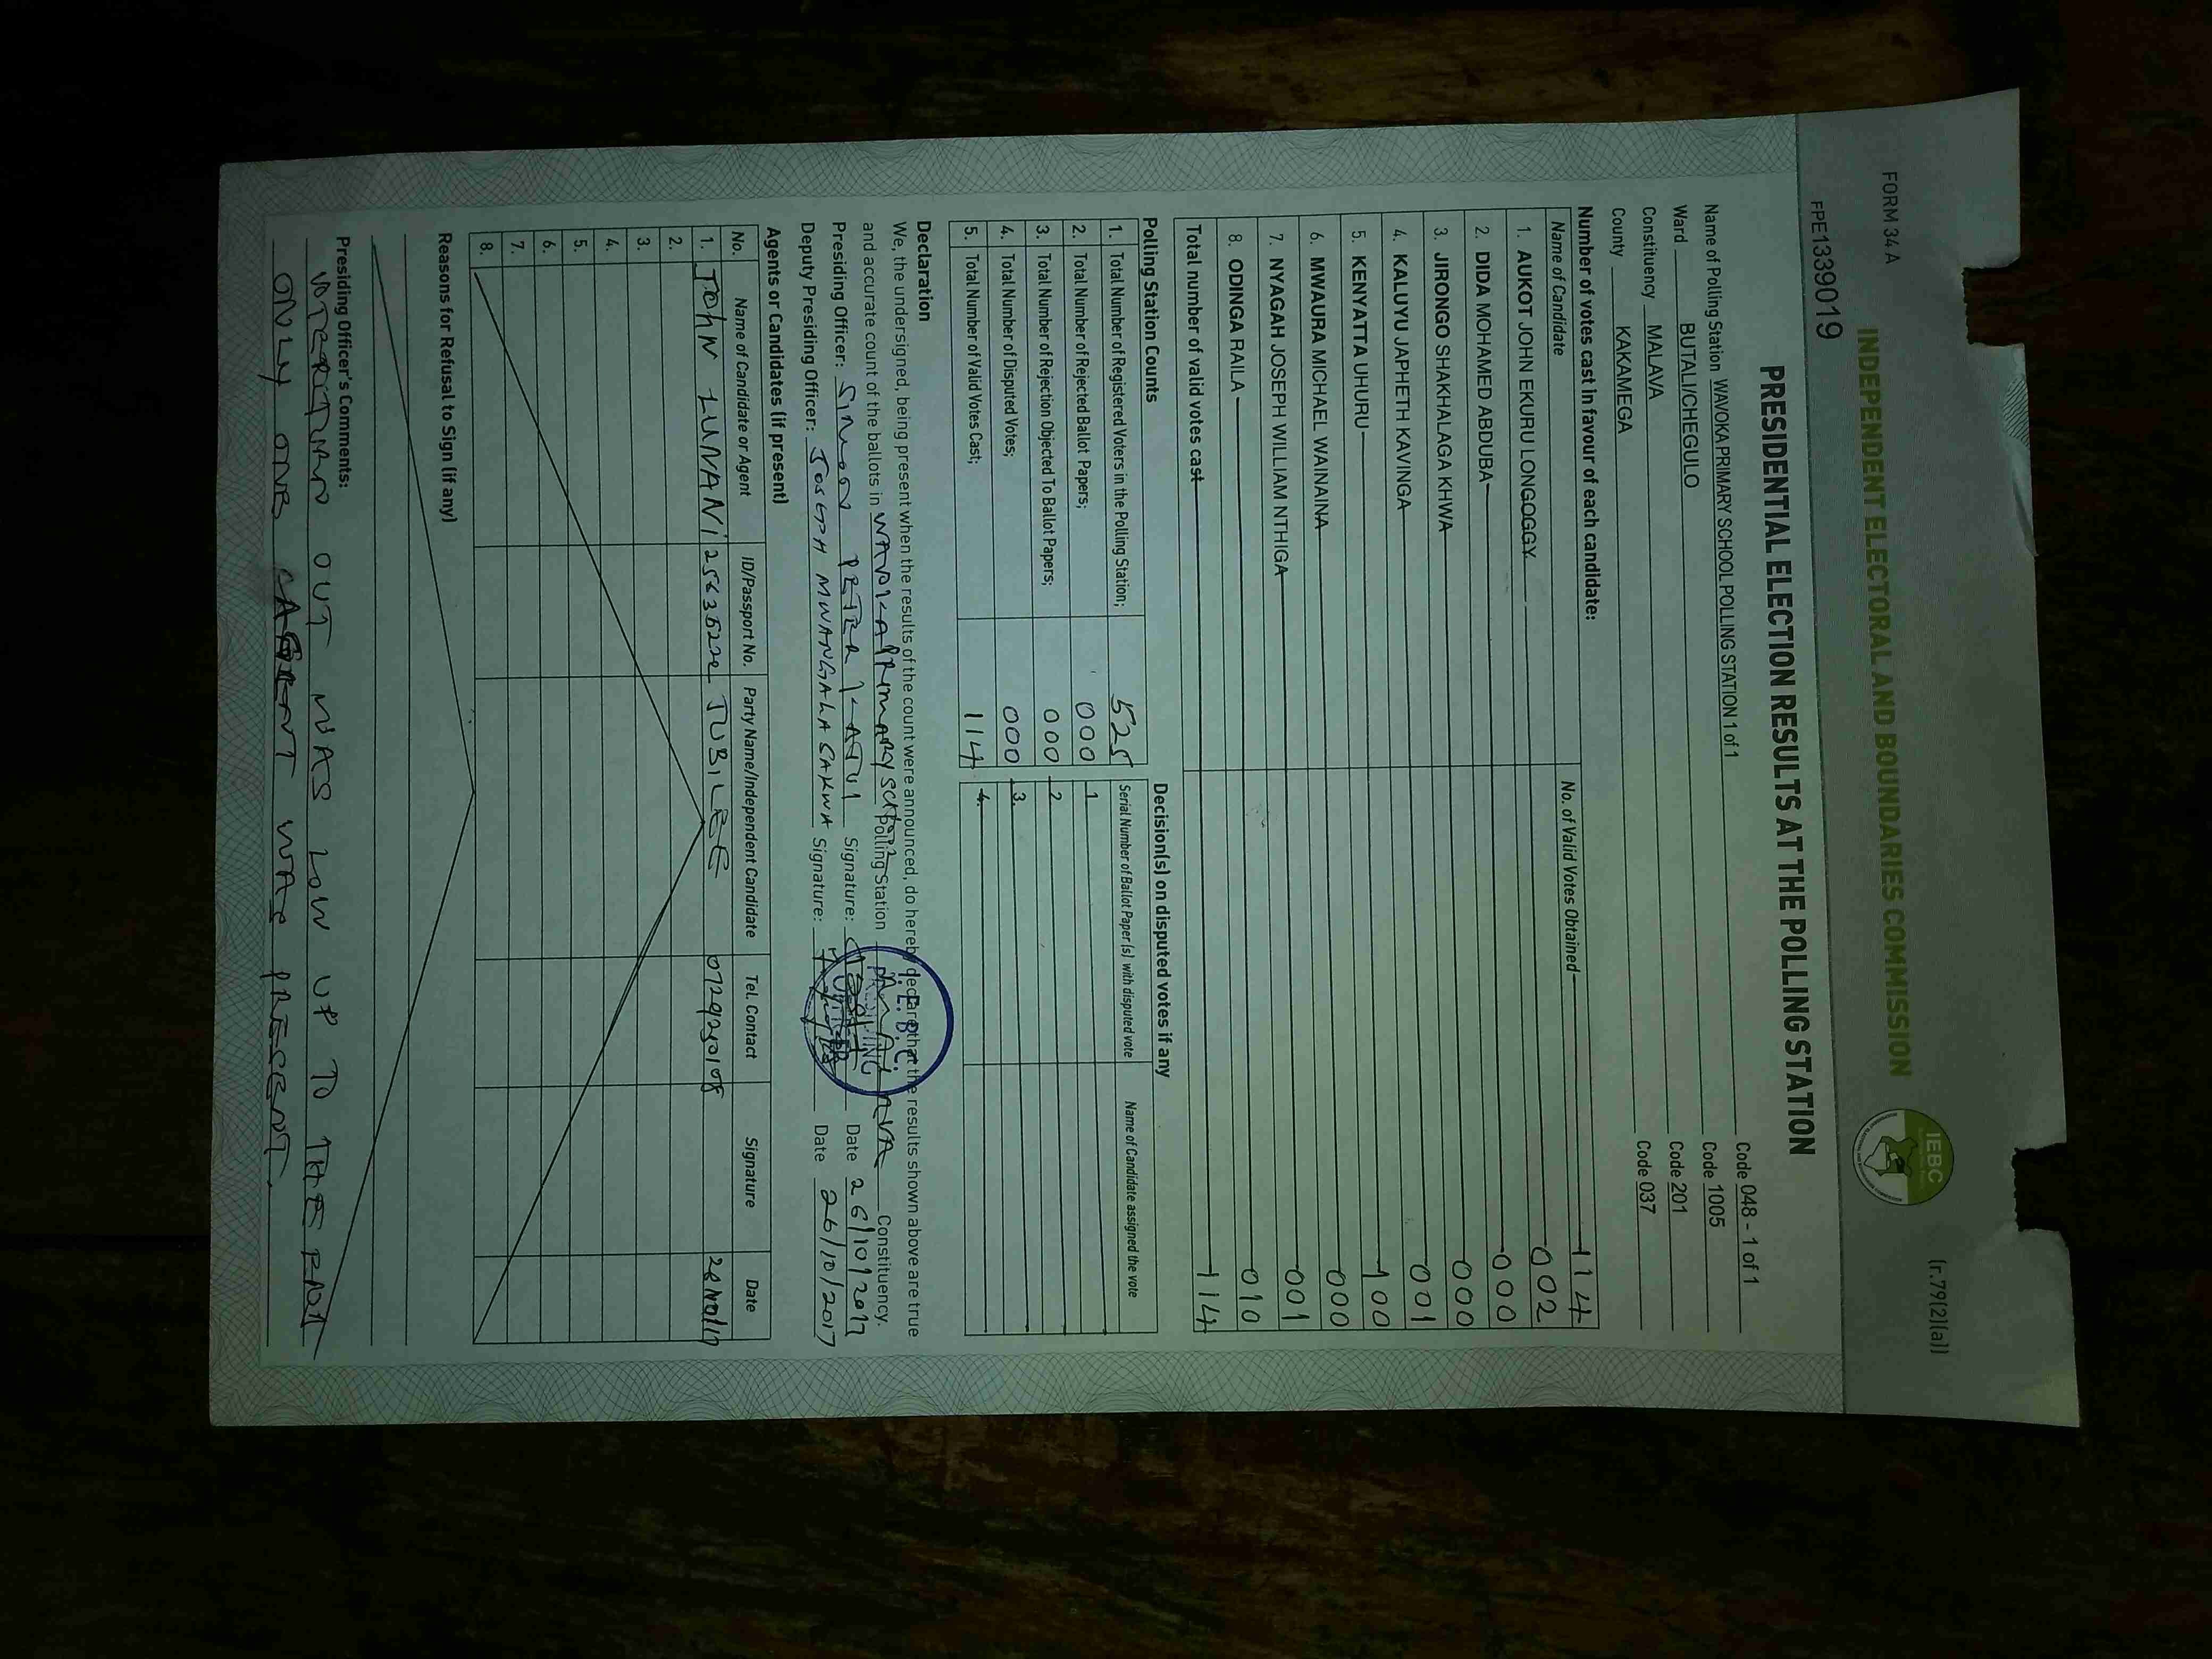 FORM 34 A
(r.79(2)(a))
INDEPENDENT ELECTORAL AND BOUNDARIES COMMISSION
IEBC
FPE1339019
PRESIDENTIAL ELECTION RESULTS AT THE POLLING STATION
Name of Polling Station WAVOKA PRIMARY SCHOOL POLLING STATION 1 of 1 Code 048 - 1 of 1
Ward BUTALI/CHEGULO Code 1005
Constituency MALAVA Code 201
County KAKAMEGA Code 037
Number of votes cast in favour of each candidate:
Name of Candidate No. of Valid Votes Obtained 114
1. AUKOT JOHN EKURU LONGOGGY 002
2. DIDA MOHAMED ABDUBA 000
3. JIRONGO SHAKHALAGA KHWA 000
4. KALUYU JAPHETH KAVINGA 001
5. KENYATTA UHURU 100
6. MWAURA MICHAEL WAINAINA 000
7. NYAGAH JOSEPH WILLIAM NTHIGA 001
8. ODINGA RAILA 010
Total number of valid votes cast 114
Polling Station Counts Decision(s) on disputed votes if any
1. Total Number of Registered Voters in the Polling Station; 525 Serial Number of Ballot Paper (s) with disputed vote Name of Candidate assigned the vote
2. Total Number of Rejected Ballot Papers; 000 1
3. Total Number of Rejection Objected To Ballot Papers; 000 2
4. Total Number of Disputed Votes; 000 3.
5. Total Number of Valid Votes Cast; 114 4.
Declaration
We, the undersigned, being present when the results of the count were announced, do hereby declare that the results shown above are true
and accurate count of the ballots in WAVOKA PRIMARY SCHOOL Polling Station MALAVA Constituency.
Presiding Officer: SIMON PETER Signature: Date 26/10/2017
Deputy Presiding Officer: JOSEPH MWANGALA SAKWA Signature: Date 26/10/2017
I.E.B.C.
PRESIDING
OFFICER
Agents or Candidates (if present)
No. Name of Candidate or Agent ID/Passport No. Party Name/Independent Candidate Tel. Contact Signature Date
1. JOHN LUNANI JUBILEE 0729230108
2.
3.
4.
5.
6.
7.
8.
Reasons for Refusal to Sign (if any)
Presiding Officer's Comments:
OUT WAS LOW UP TO THE
ONLY ONE AGENT WAS PRESENT.